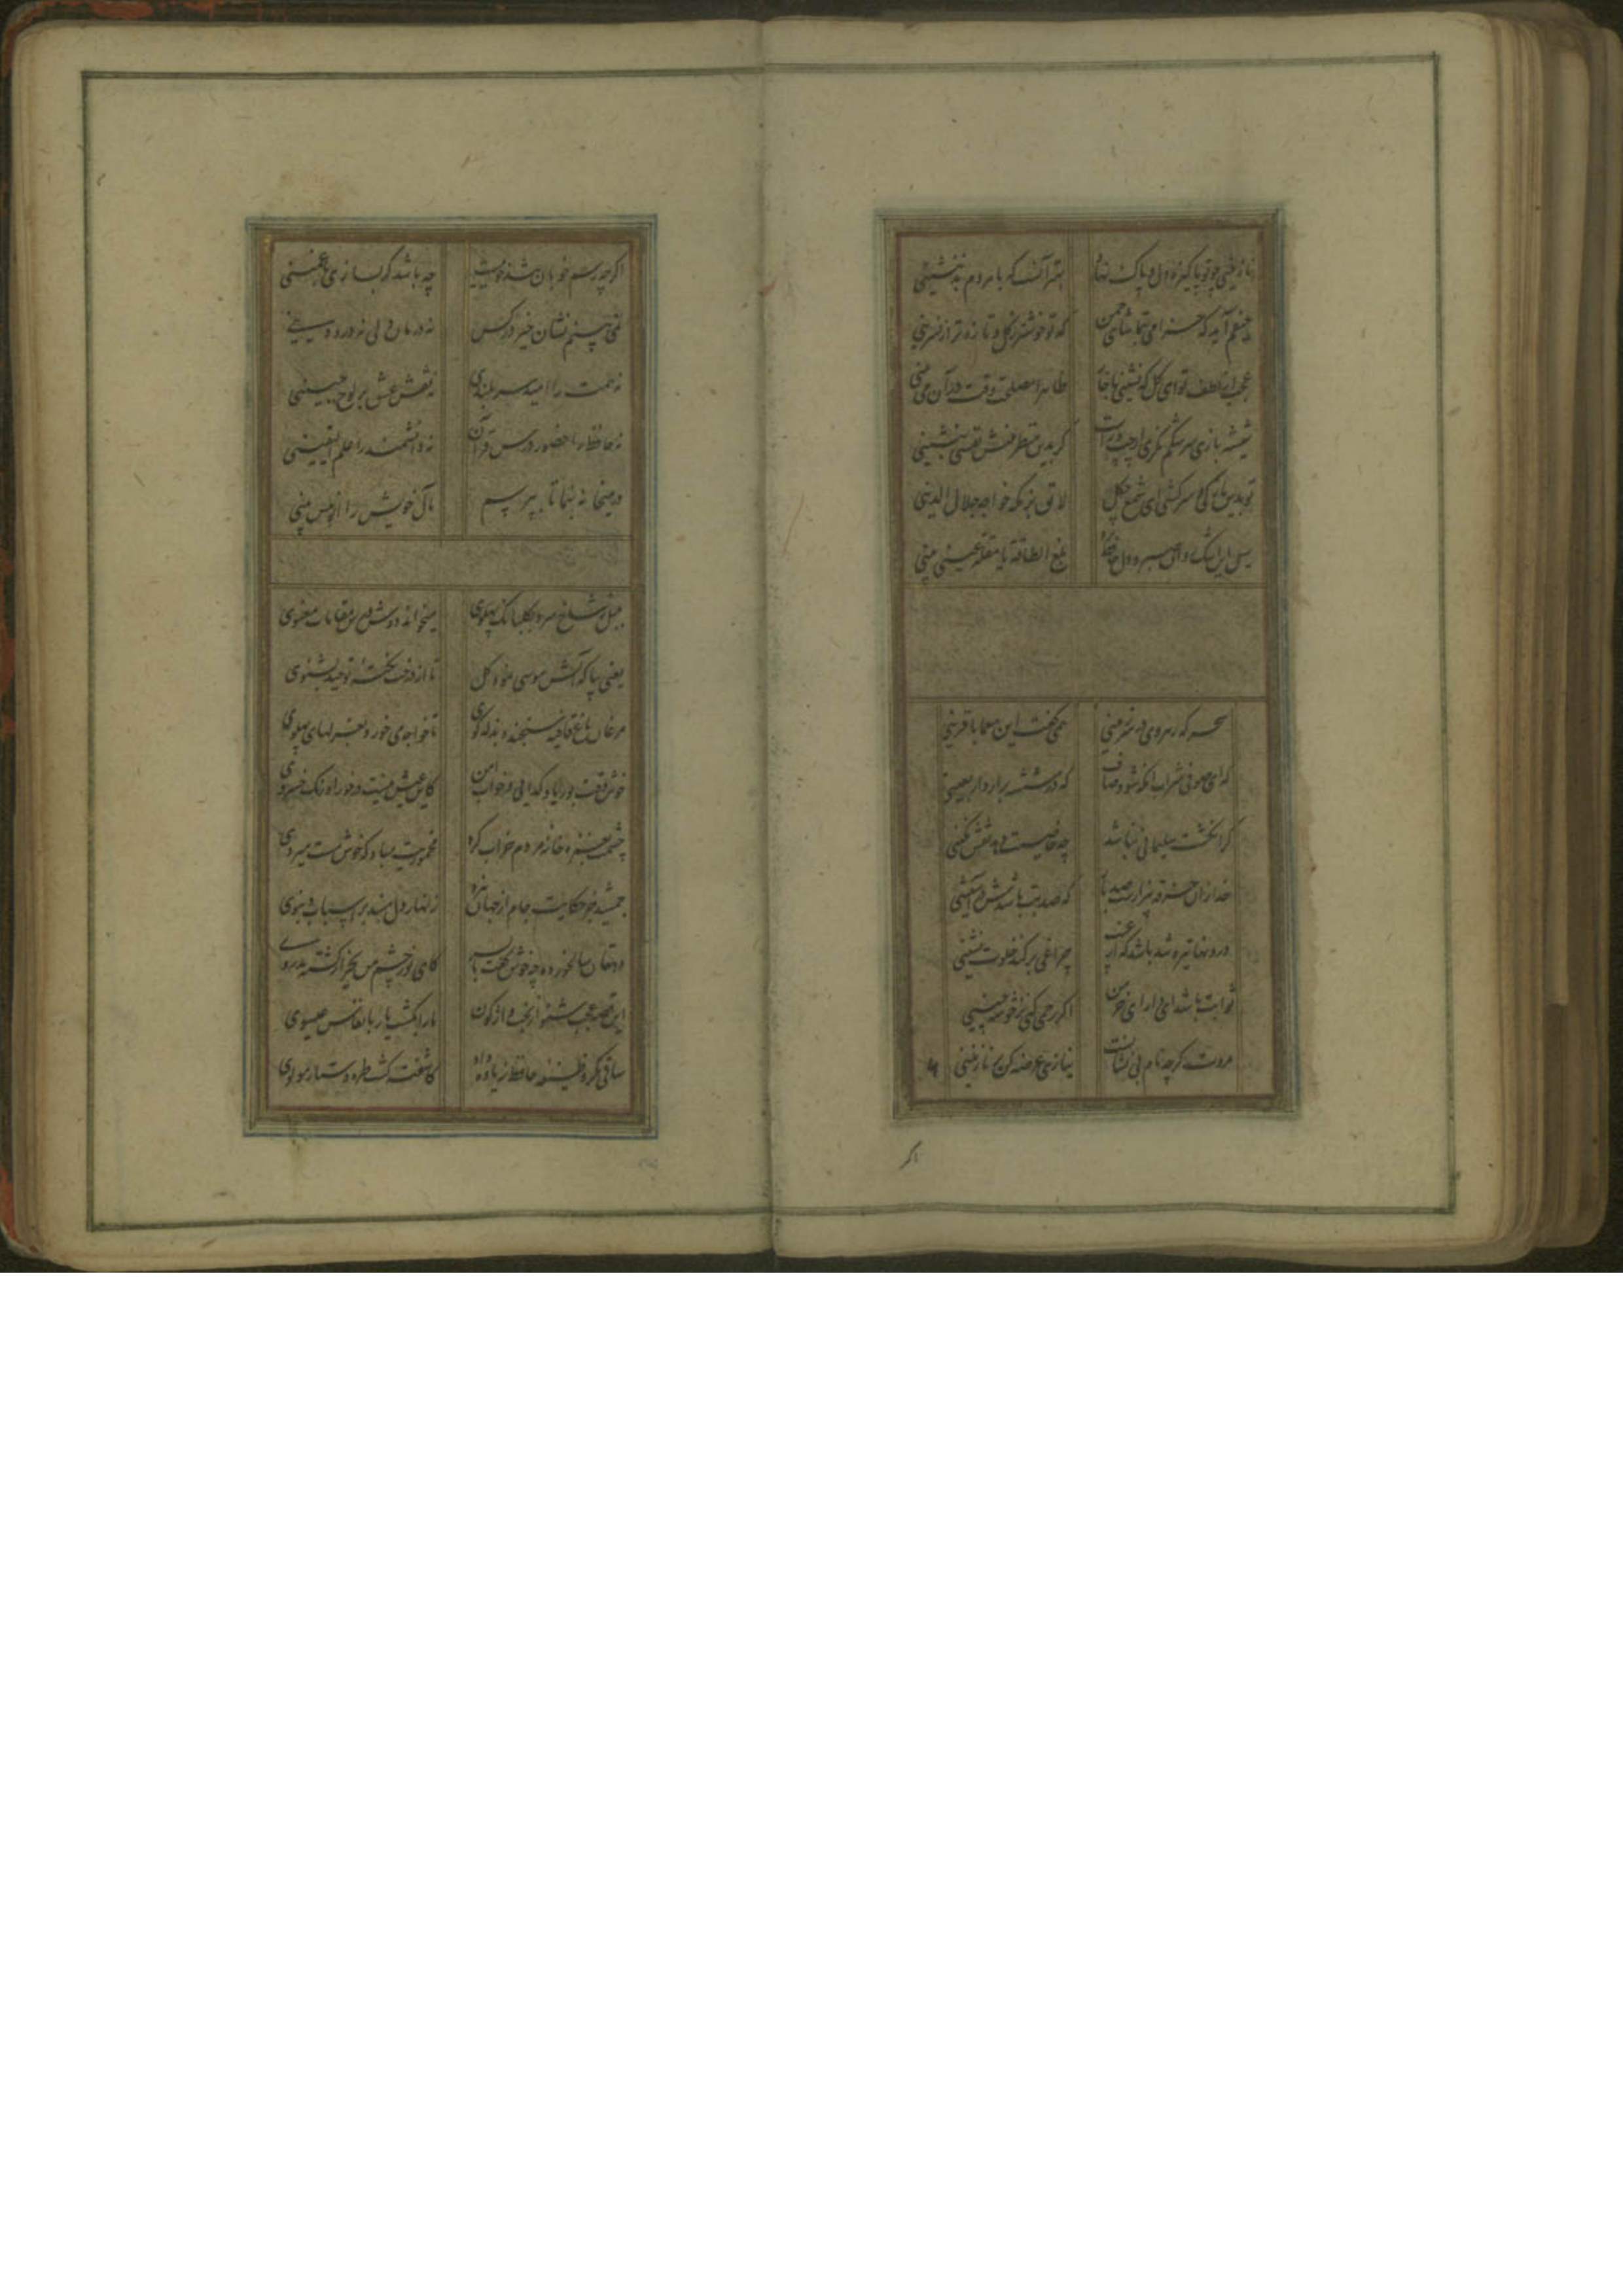 نازنینی چو تو پاکیزه دل و پاک نهاد بهتر آنست که با مردم بد ننشینی
حیفم آید که خرامی بتماشای چمن که تو خوشتر ز گل و تازه تر از نسرینی
عجب از لطف تو ای گل که نشینی با خار ظاهرا مصلحت وقت در آن می بینی
شیشه بازی سرشکم نگری از چپ و راست گر بدین منظر بینش نفسی بنشینی
تو بدین نازکی و سرکشی ای شمع چگل لایق بزمگه خواجه جلال الدینی
سیل این اشک روان صبر و دل حافظ برد بلغ الطاقة یا مقلة عینی بینی
سحرگه رهروی در سرزمینی همی گفت این معما با قرینی
که ای صوفی شراب آنگه شود صاف که در شیشه برآرد اربعینی
گر انگشت سلیمانی نباشد چه خاصیت دهد نقش نگینی
خدا زان خرقه بیزارست صد بار که صد بت باشدش در آستینی
درونها تیره شد باشد که از غیب چراغی بر کند خلوت نشینی
ثوابت باشد ای دارای خرمن اگر رحمی کنی بر خوشه چینی
مروت گرچه نام بی نشانست نیازی عرضه کن بر نازنینی
اگر
اگرچه رسم خوبان تندخوییست چه باشد گر بسازی با غمینی
نمی بینم نشان خیر در کس نه درمان دلی نه درد دینی
نه همت را امید سربلندی نه نقش عشق بر لوح جبینی
نه حافظ را حضور درس قرآن نه دانشمند را علم الیقینی
در میخانه بنما تا بپرسم مآل خویش را از پیش بینی
بلبل ز شاخ سرو بگلبانگ پهلوی میخواند دوش درس مقامات معنوی
یعنی بیا که آتش موسی نمود گل تا از درخت نکته توحید بشنوی
مرغان باغ قافیه سنجند و بذله گوی تا خواجه می خورد بغزلهای پهلوی
خوش وقت بوریا و گدایی و خواب امن کاین عیش نیست درخور اورنگ خسروی
چشمت بغمزه خانه مردم خراب کرد مخموریت مباد که خوش مست میروی
جمشید جز حکایت جام از جهان نبرد زنهار دل مبند بر اسباب دنیوی
دهقان سالخورده چه خوش گفت با پسر کای نور چشم من بجز از کشته ندروی
این قصه عجب شنو از بخت واژگون ما را بکشت یار بانفاس عیسوی
ساقی مگر وظیفه حافظ زیاده داد کاشفته گشت طره دستار مولوی